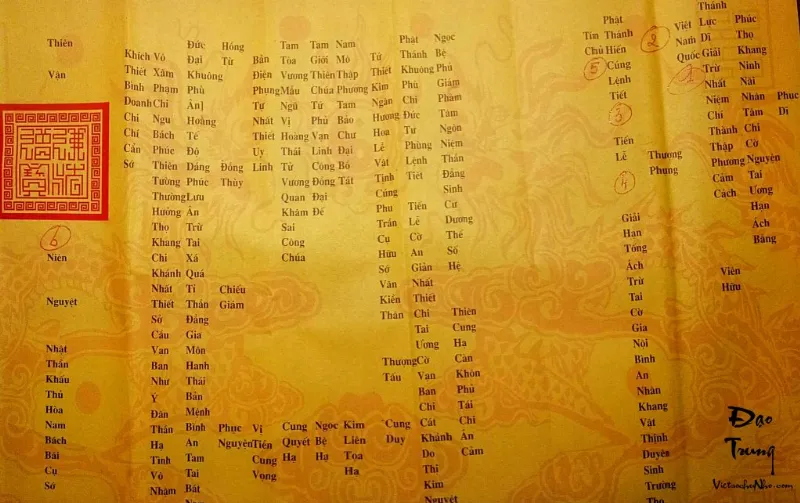 Thánh
Phúc Di
Phúc Thọ Khang Ninh Nải Nhân Tâm Chi Cờ Nguyện Tai Ương Hạn Ách Bằng
Lực Di Giải Trừ Nhất Niệm Chí Thành Thập Phương Cảm Cách Viên Hữu
Việt Nam Quốc
Thượng Phụng
Phật Thánh Hiến Cúng Lệnh Tiết Tiến Lễ Giải Hạn Tống Ách Trừ Tai Cờ Gia Nội Bình An Nhân Khang Vật Thịnh Duyên Sinh Trường Thọ
Tín Chủ
1
2
3
4
5
6
Ngọc Bệ Phủ Giám Phàm Tâm Ngôn Niệm Thần Đẳng Sinh Cư Dương Thế Số Hệ Thiên Cung Hạ Càn Khôn Phủ Tái Chi Ân Cảm
Phật Thánh Khuông Phù Chi Đức Từ Phùng Lệnh Tiết Tiến Lễ Cờ An Giản Nhất Thiết Chi Tai Ương Cờ Vạn Ban Chi Cát Khánh Do Thi Kim Nguyệt
Từ Thiết Kim Ngân Hương Hoa Lễ Vật Tịnh Cúng Phu Trần Cụ Hữu Sớ Văn Kiến Thân Thượng Tấu Cung Duy
Nam Mô Thập Phương Tam Bảo Chư Đại Bồ Tát Kim Liên Tọa Hạ
Tam Giới Thiên Chúa Tứ Phủ Vạn Linh Công Đồng Đại Đế Ngọc Bệ Hạ
Tam Tòa Vương Mẫu Ngũ Vị Hoàng Thái Tử Vương Quan Khâm Sai Công Chúa Cung Quyết Hạ
Bản Điện Phụng Tự Nhất Thiết Uy Linh Vị Tiền Cung Vọng
Hồng Từ Đồng Thùy Chiếu Giám Phục Nguyện
Đức Đại Khuông Phù Ân] Hoàng Tế Độ Dáng Phúc Lưu Ân Trừ Tai Xá Quá Tỉ Thần Đẳng Gia Môn Hanh Thái Bản Mệnh Bình An Tam Tai Bất
Vó Xâm Phạm Chi Ngu Bách Phúc Thiên Tường Thường Hướng Thọ Khang Chi Khánh Nhất Thiết Sở Cầu Vạn Ban Như Ý Đãn Thần Hạ Tình Vô Nhâm
Khích Thiết Bình Doanh Chi Chí Cẩn Sớ
Thiên Vận Niên Nguyệt Nhật Thần Khấu Thủ Hòa Nam Bách Bái Cụ Sớ
Đạo
Trung
Viettoanchu